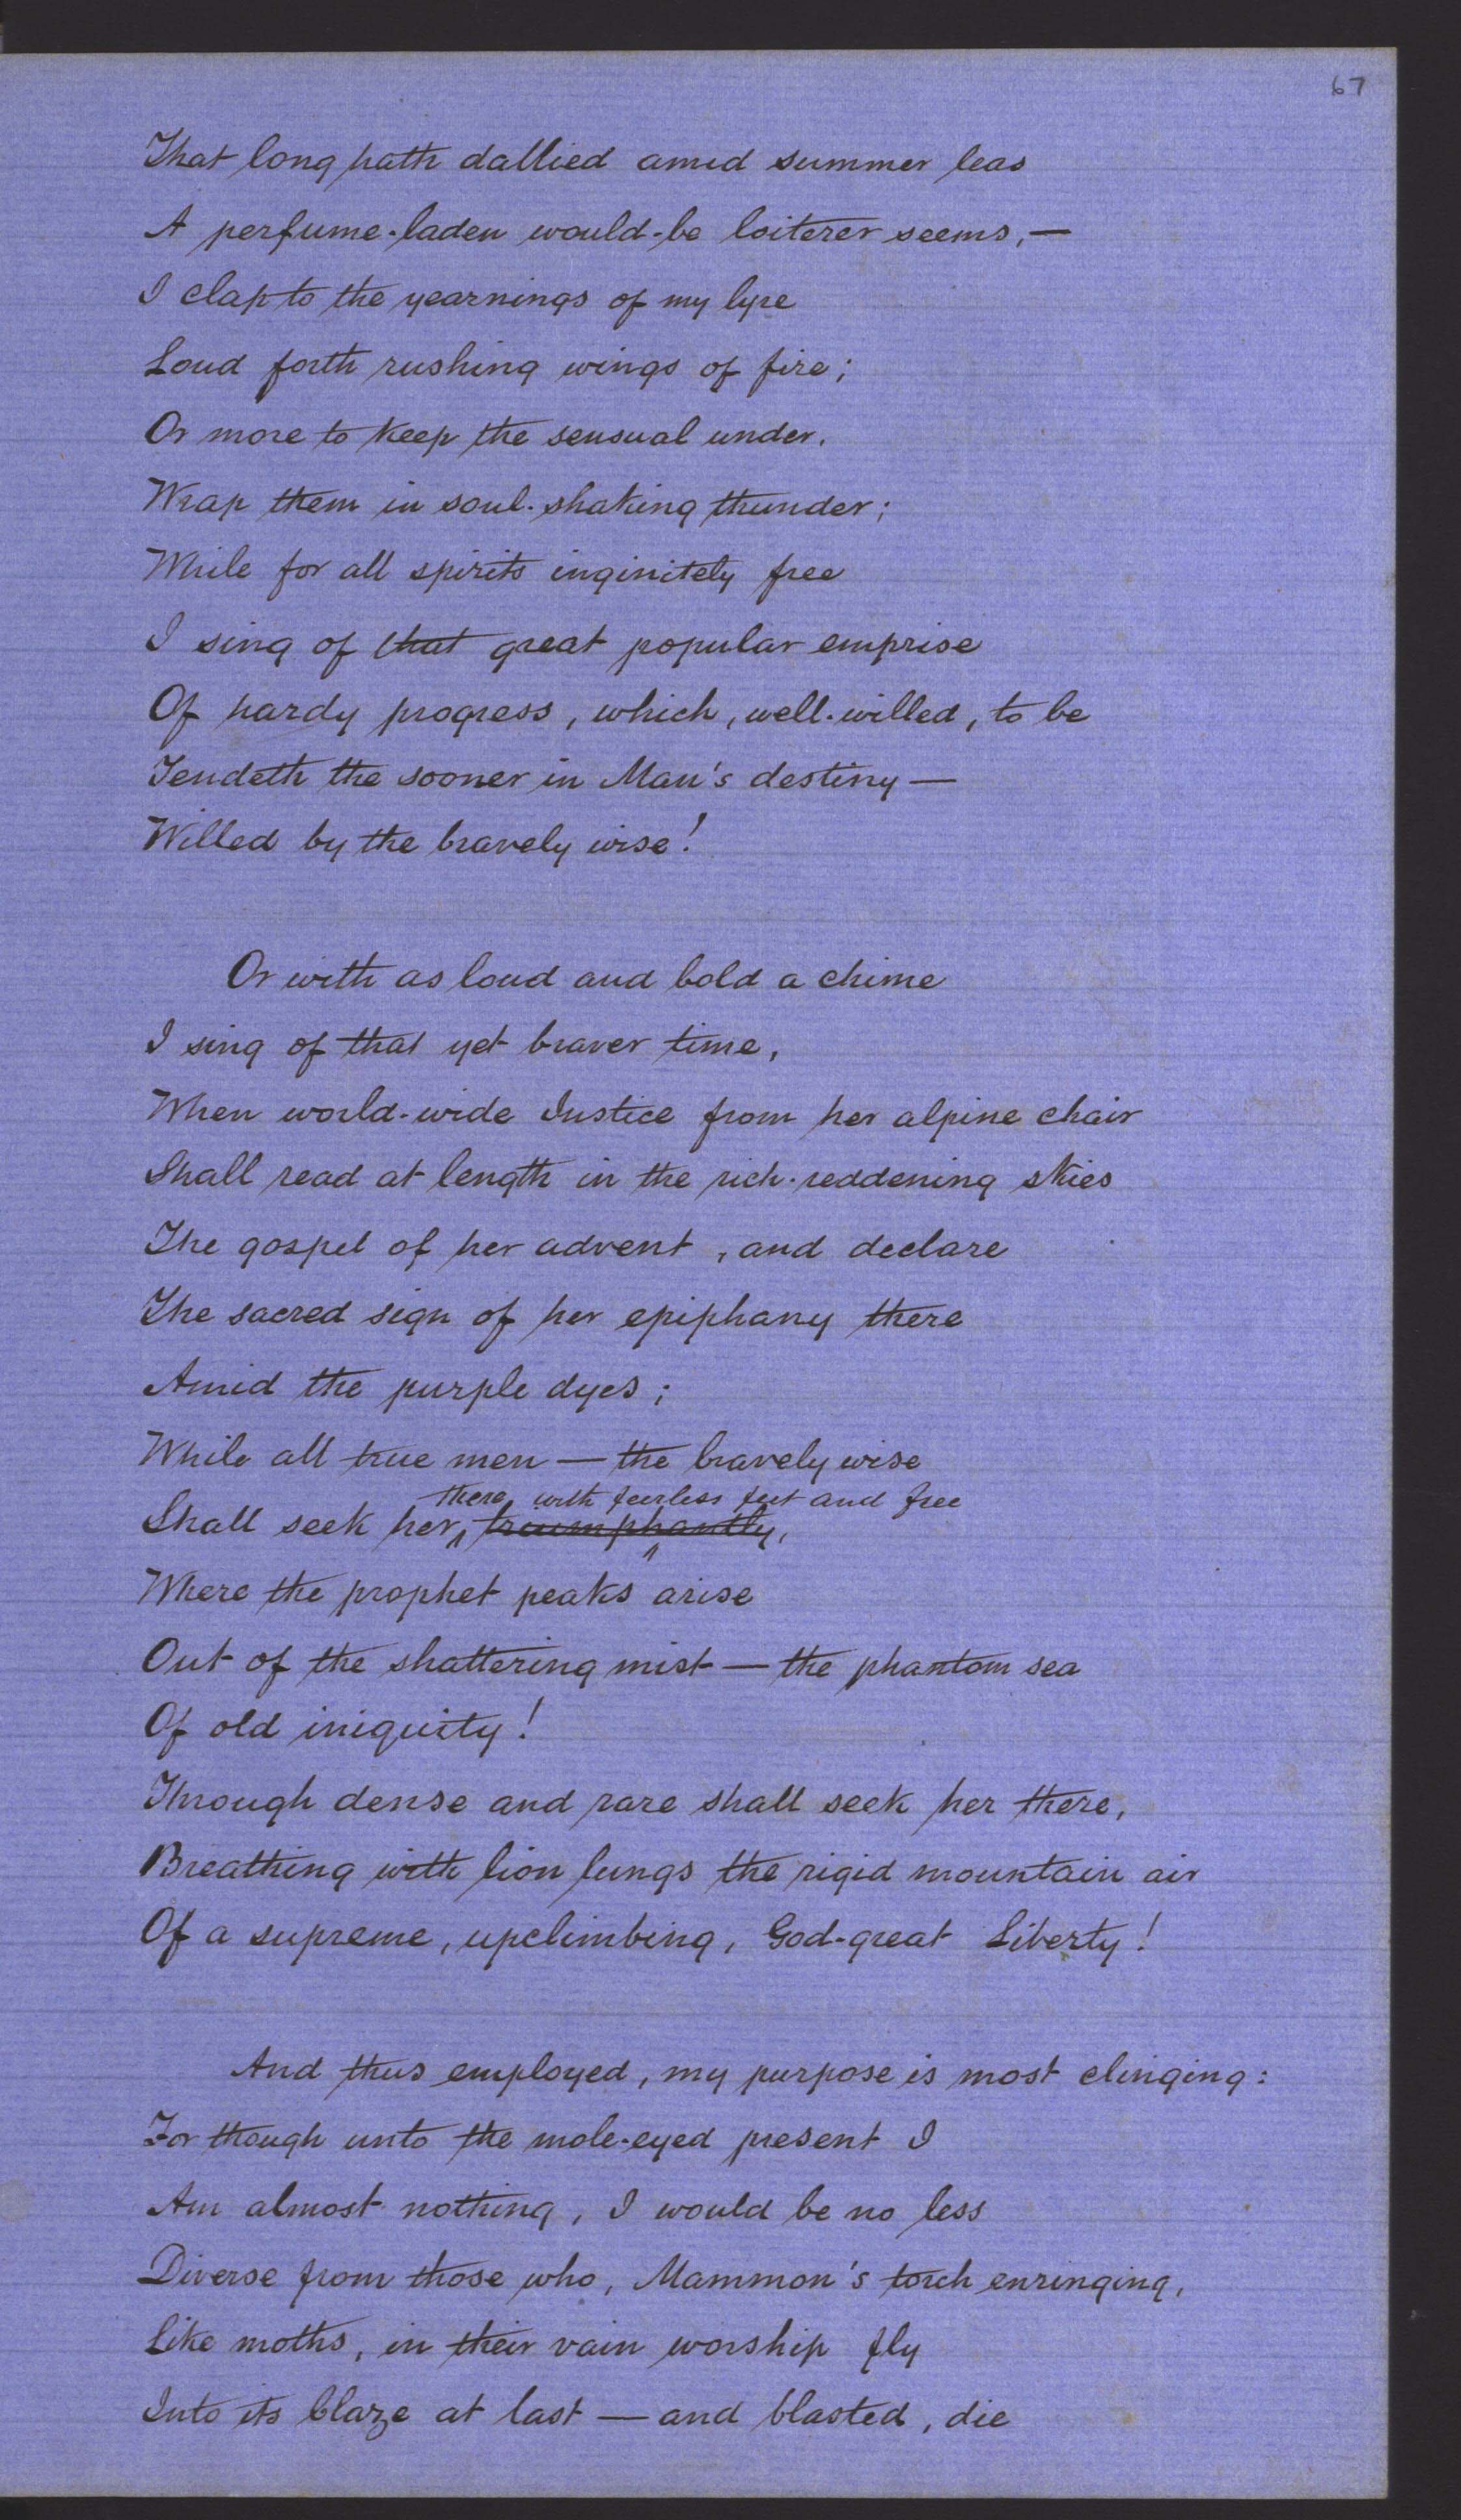 67
That long hath dallied amid summer leas
A perfume-laden would-be loiterer seems,—
I clap to the yearnings of my lyre
Loud forth rushing wings of fire;
Or more to keep the sensual under,
Wrap them in soul-shaking thunder;
While for all spirits inginitely free
I sing of that great popular emprise
Of hardy progress, which, well-willed, to be
Tendeth the sooner in Man's destiny—
Willed by the bravely wise!
Or with as loud and bold a chime
I sing of that yet braver time,
When world-wide Justice from her alpine chair
Shall read at length in the rich-reddening skies
The gospel of her advent, and declare
The sacred sign of her epiphany there
Amid the purple dyes;
While all true men—the bravely wise
there, with feerless feet and free
Shall seek her, triumphantly,
Where the prophet peaks arise
Out of the shattering mist—the phantom sea
Of old iniquity!
Through dense and rare shall seek her there,
Breathing with lion lungs the rigid mountain air
Of a supreme, upclimbing, God-great Liberty!
And thus employed, my purpose is most clinging:
For though unto the mole-eyed present I
Am almost nothing, I would be no less
Diverse from those who, Mammon's torch enringing,
Like moths, in their vain worship fly
Into its blaze at last—and blasted, die